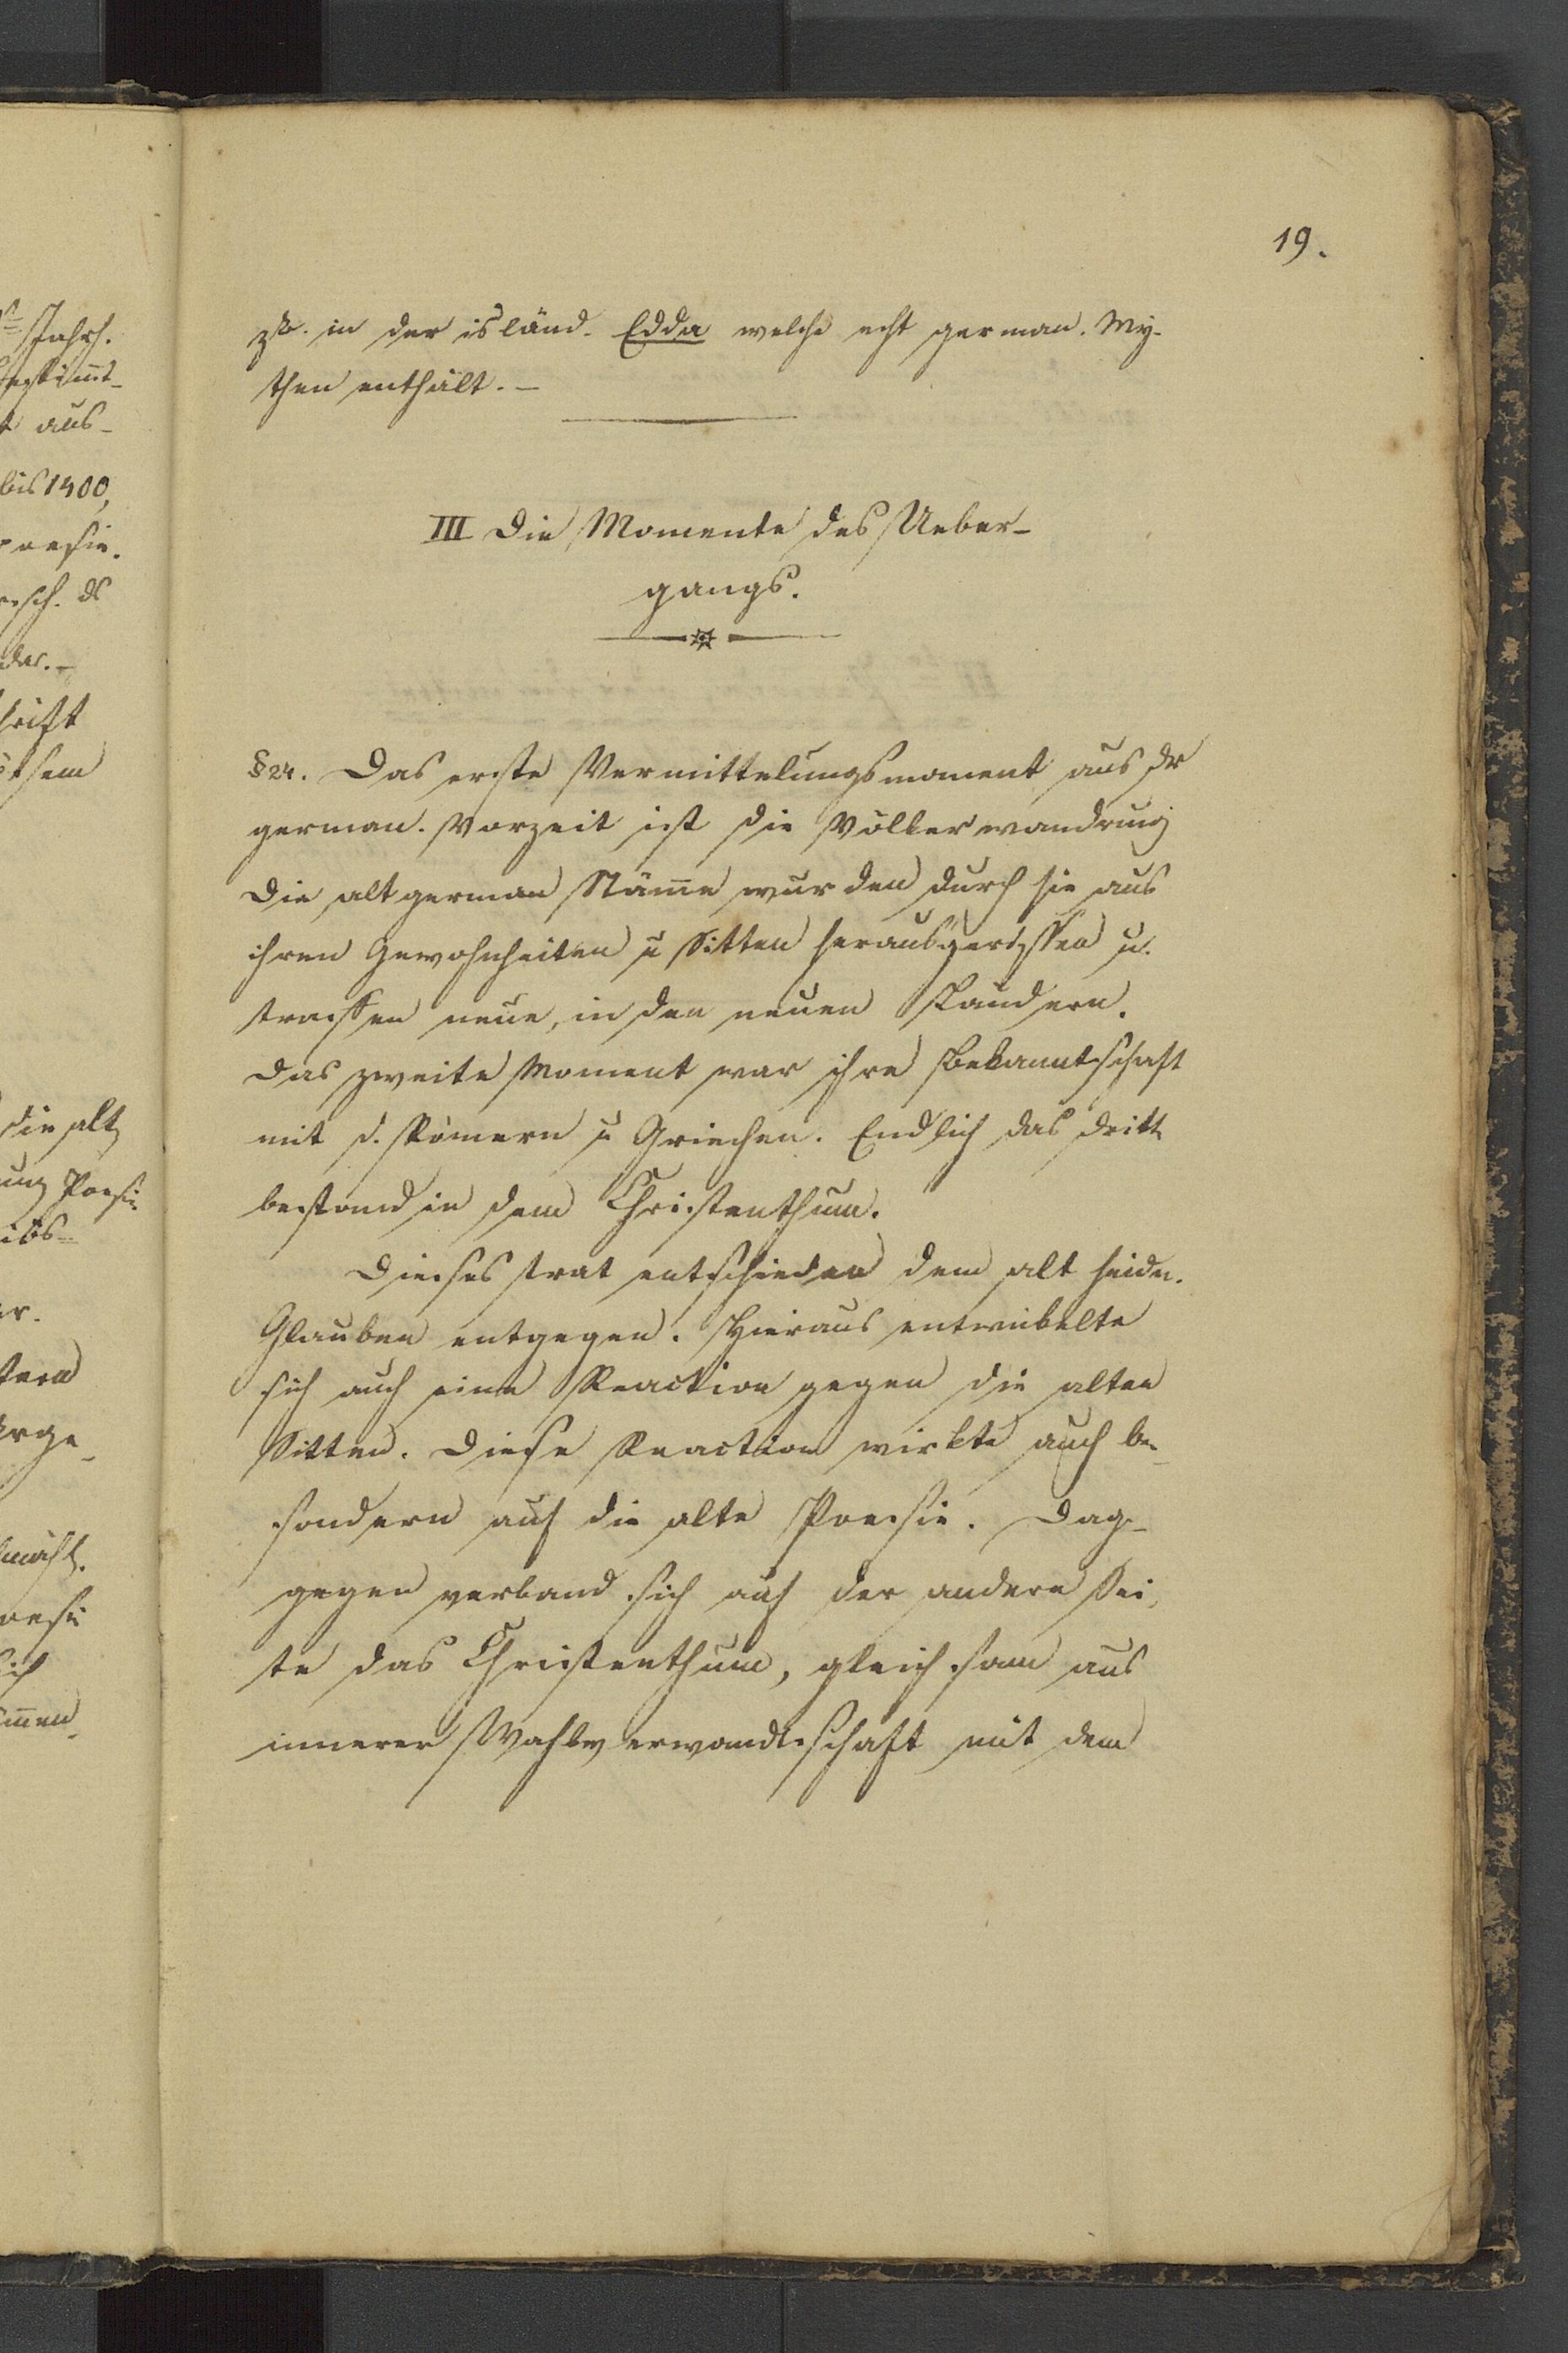 19.
zB. in der isländ. Edda welche echt german. My-
then enthält. —
III Die Momente des Ueber-
gangs.
§ 24. Das erste Vermittelungsmoment aus dr
german. Vorzeit ist die Völkerwandrung
Die altgerman Stäm̄e wurden durch sie aus
ihren Gewohnheiten u Sitten herausgerissen u.
neue, in den neuen Ländern.
Das zweite Moment war ihre Bekanntschaft
mit d. Römern u Griechen. Endlich das dritte
bestand in dem Christenthum.
Dieses trat entschieden dem alt heidn.
Glauben entgegen. Hieraus entwickelte
sich auch eine Reaction gegen die alten
Sitten. Diese Reaction wirkte auch be-
sondern auf die alte Poesie. Dage-
gegen verband sich auf der andern Sei-
te das Christenthum, gleichsam aus
innerer Wahlverwandtschaft mit dem
Jahrh.
aus-
bis 1400,
oesie.
die alt
Poesie